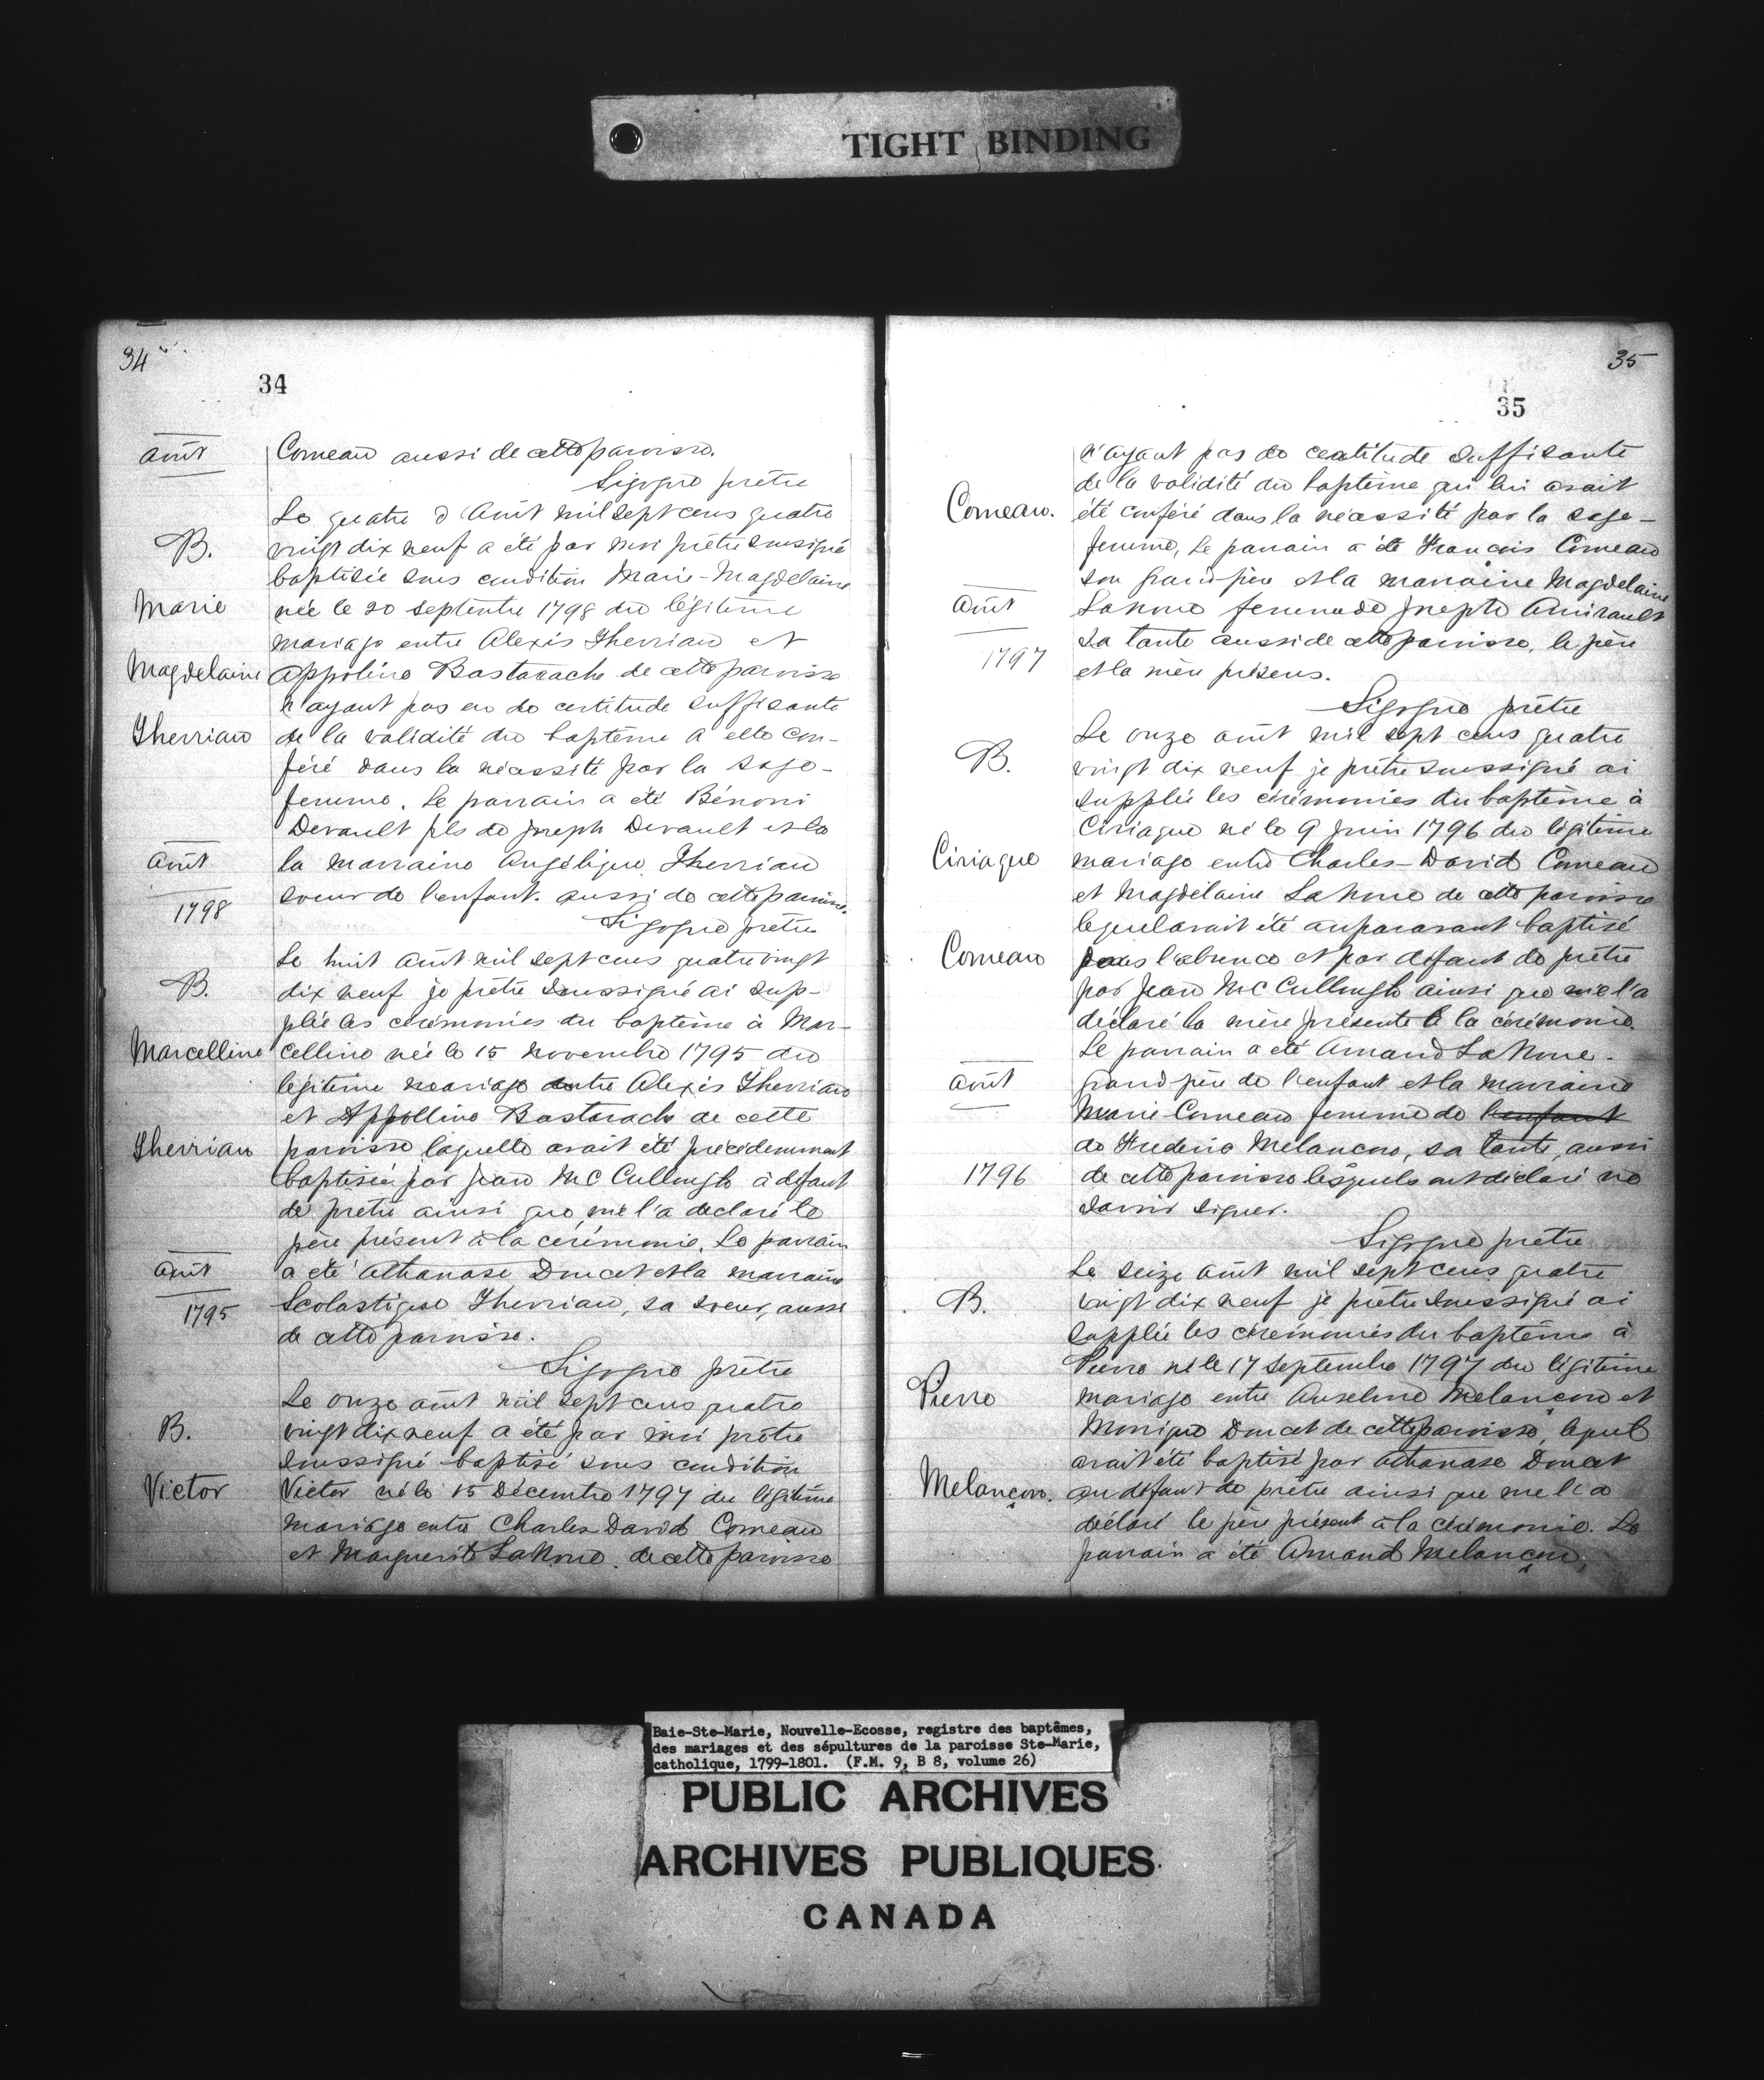 TIGHT BINDING
34
34
août
Comeau aussi de cette paroisse.
Sigogne prêtre
Le quatre d Août mil sept cens quatre
B.
vingt dix neuf a été par moi prêtre soussigné
baptisée sous condition Marie-Magdelaine
Marie
née le 20 septembre 1798 du légitime
mariage entre Alexis Therriau et
Magdelaine
Appoline Bastarache de cette paroisse
n'ayant pas eu de certitude suffisante
Therriau
de la validité du baptême a elle con-
féré dans la nécessité par la sage-
femme. Le parrain a été Bénoni
Devault fils de Joseph Devault et la
août
la marraine Angélique Therriau
1798
soeur de l'enfant. aussi de cette paroisse.
Sigogne prêtre
Le huit Août mil sept cens quatre vingt
B.
dix neuf je prêtre soussigné ai sup-
pléé les cérémonies du baptême à Mar-
Marcelline
celline née le 15 novembre 1795 du
légitime mariage entre Alexis Therriau
et Appolline Bastarach de cette
Therriau
paroisse laquelle avait été précédemment
baptisée par Jean McCullough à défaut
de prêtre ainsi que me l'a déclaré le
père présent à la cérémonie. Le parrain
août
a été Athanase Doucet et la marraine
1795
Scolastique Therriau, sa soeur, aussi
de cette paroisse.
Sigogne prêtre
Le onze août mil sept cens quatre
B.
vingt dix neuf a été par moi prêtre
soussigné baptisé sous condition
Victor
Victor né le 15 Décembre 1797 du légitime
mariage entre Charles David Comeau
et Marguerite LaNoue de cette paroisse
35
35
n'ayant pas de certitude suffisante
de la validité du baptême qui lui avait
Comeau.
été conféré dans la nécessité par la sage-
femme, Le parrain a été Francois Comeau
son grand père et la marraine Magdelaine
août
Lanoue femme de Joseph Amirault
sa tante aussi de cette paroisse, le père
1797
et la mère présens.
Sigogne prêtre
Le onze août mil sept cens quatre
B.
vingt dix neuf je prêtre soussigné ai
suppléé les cérémonies du baptême à
Ciriaque né le 9 Juin 1796 du légitime
Ciriaque
mariage entre Charles-David Comeau
et Magdelaine LaNoue de cette paroisse
lequel avait été auparavant baptisé
Comeau
dans l'absence et par défaut de prêtre
par Jean McCullough ainsi que me l'a
déclaré la mère présente à la cérémonie.
Le parrain a été Amand LaNoue
août
grand père de l'enfant et la marraine
Marie Comeau femme de l'enfant
de Frederic Melancon, sa tante, aussi
1796
de cette paroisse lesquels ont déclaré ne
savoir signer.
Sigogne prêtre
Le seize août mil sept cens quatre
B.
vingt dix neuf je prêtre soussigné ai
suppléé les cérémonies du baptême à
Pierre né le 17 Septembre 1797 du légitime
Pierre
mariage entre Anselme Melançon et
Monique Doucet de cette paroisse, lequel
avait été baptisé par Athanase Doucet
Melançon.
au défaut de prêtre ainsi que me l'a
déclaré le père présent à la cérémonie. Le
parrain a été Amand Melançon,
Baie-Ste-Marie, Nouvelle-Ecosse, registre des baptêmes,
des mariages et des sépultures de la paroisse Ste-Marie,
catholique, 1799-1801. (F.M. 9, B 8, volume 26)
PUBLIC ARCHIVES
ARCHIVES PUBLIQUES
CANADA